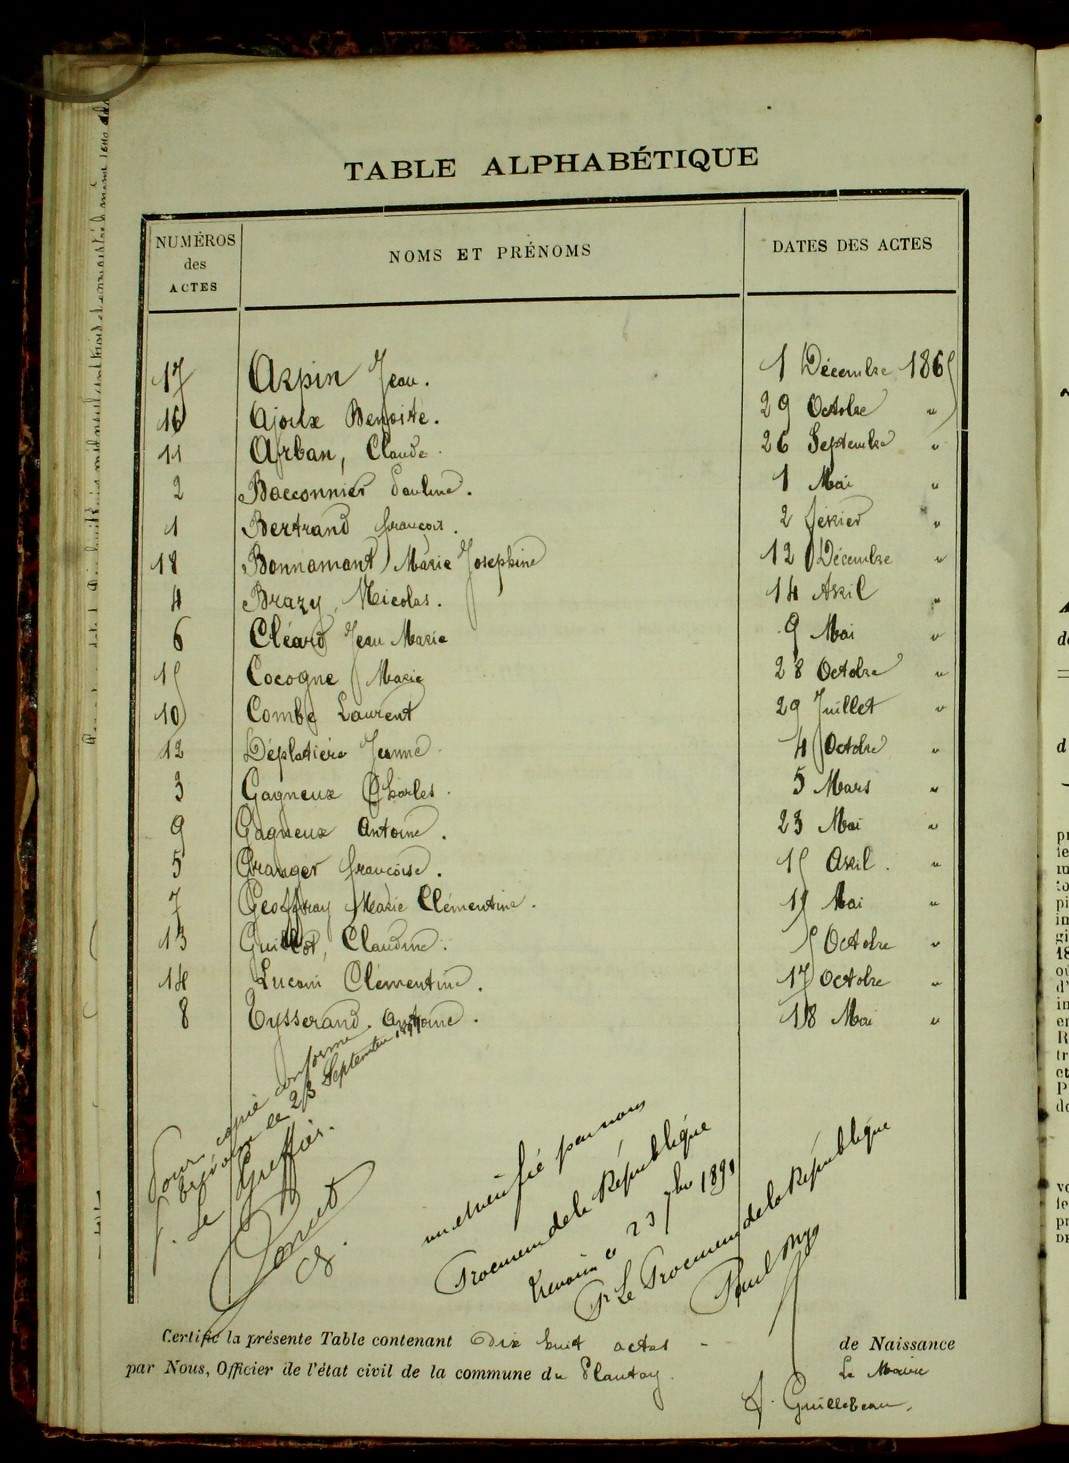 TABLE ALPHABÉTIQUE
NUMÉROS des ACTES NOMS ET PRÉNOMS DATES DES ACTES
17 Arpin Jean. 1 Décembre 1865
16 Ajoux Benoite. 29 Octobre "
11 Arban, Claude. 26 Septembre "
2 Baconnier Pauline. 1 Mai "
1 Bertrand françois. 2 février "
18 Bonnamant Marie Josephine 12 Décembre "
4 Brazy, Nicolas. 14 Avril "
6 Cléard Jean Marie 9 Mai "
15 Cocogne Marie 28 Octobre "
10 Combe Laurent 29 Juillet "
12 Déplatière Jeanne. 4 Octobre "
3 Gagneux Charles. 5 Mars "
9 Gagneux Antoine. 23 Mai "
5 Granger françoise. 15 Avril. "
7 Geoffray Marie Clémentine. 15 Mai "
13 Guillot, Claudine. 5 Octobre "
14 Luconi Clémentine. 17 Octobre "
8 Tysserand. Antoine. 18 Mai "
Pour copie conforme
le 23 Septembre
Le Greffier.
par nous
Procureur de la République
Trévoux le 23 7bre 1891
Pr Le Procureur de la République
Paul
Certifié la présente Table contenant Dix huit actes - de Naissance
par Nous, Officier de l'état civil de la commune du Plantay. Le Maire
Guillebeau.